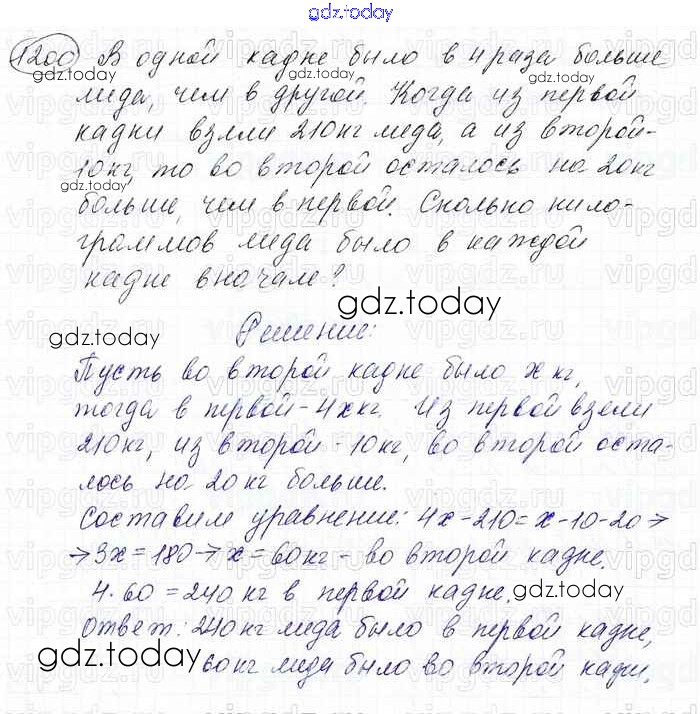 gdz.today
1200 В одной кадке было в 4 раза больше
меда, чем в другой. Когда из первой
кадки взяли 210 кг меда, а из второй-
10кг, то во второй осталось на 20кг
больше, чем в первой. Сколько кило-
граммов меда было в каждой
кадке вначале?
Решение:
Пусть во второй кадке было x кг,
тогда в первой - 4x кг. Из первой взяли
210 кг, из второй - 10кг, во второй оста-
лось на 20 кг больше.
Составим уравнение: 4x-210=x-10-20→
→3x=180→x=60кг - во второй кадке.
4·60=240 кг в первой кадке.
Ответ: 240 кг меда было в первой кадке,
60 кг меда было во второй кадк.
gdz.today
gdz.today
gdz.today
gdz.today
gdz.today
gdz.today
gdz.today
gdz.today